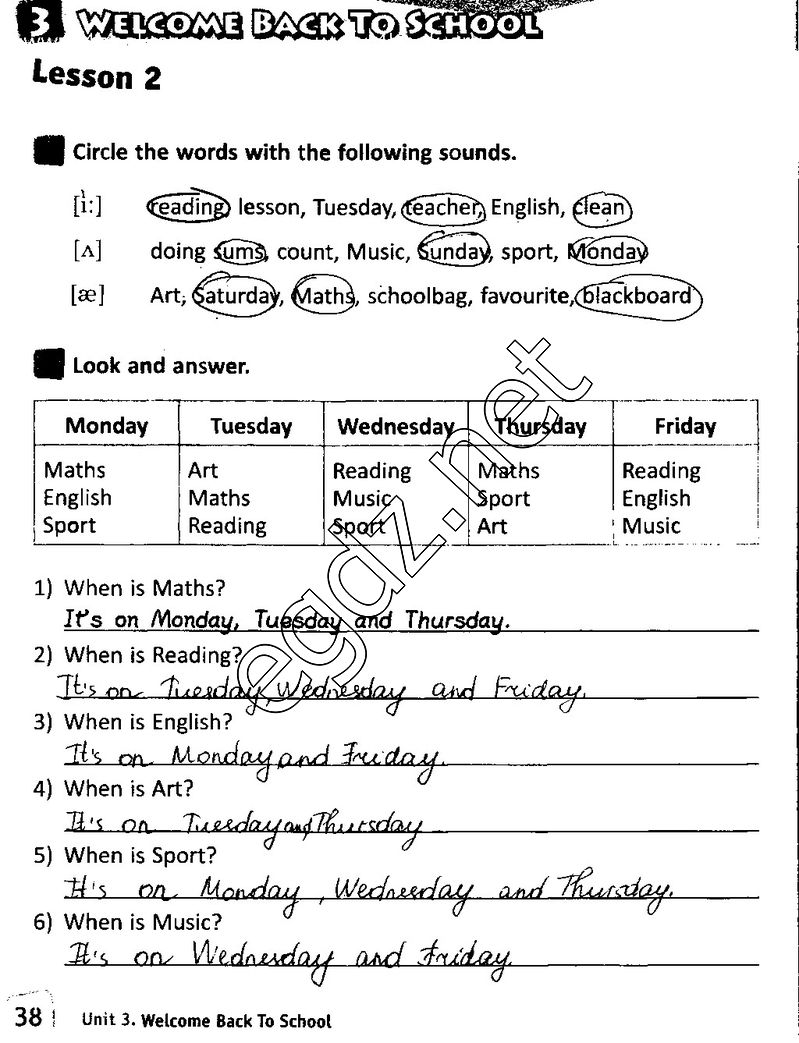 3 WELCOME BACK TO SCHOOL
Lesson 2
Circle the words with the following sounds.
[i:] reading, lesson, Tuesday, teacher, English, clean
[ʌ] doing sums, count, Music, Sunday, sport, Monday
[æ] Art, Saturday, Maths, schoolbag, favourite, blackboard
Look and answer.
Monday Tuesday Wednesday Thursday Friday
Maths Art Reading Maths Reading
English Maths Music Sport English
Sport Reading Sport Art Music
egdz.net
1) When is Maths?
It's on Monday, Tuesday and Thursday.
2) When is Reading?
It's on Tuesday, Wednesday and Friday.
3) When is English?
It's on Monday and Friday.
4) When is Art?
It's on Tuesday and Thursday
5) When is Sport?
It's on Monday, Wednesday and Thursday.
6) When is Music?
It's on Wednesday and Friday.
38 Unit 3. Welcome Back To School